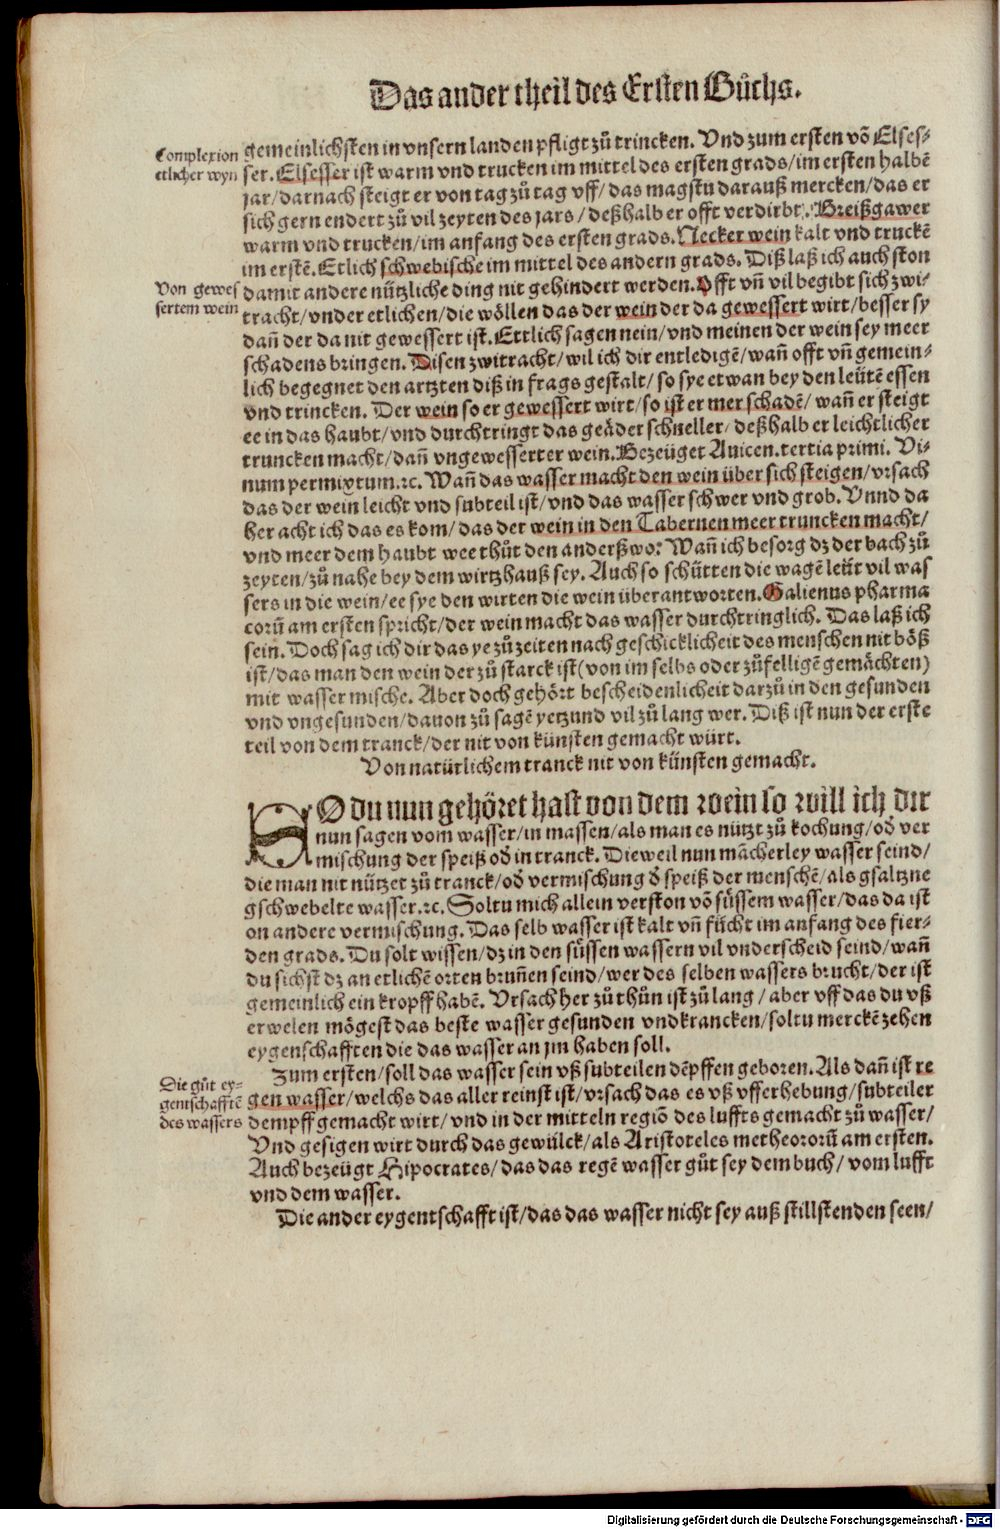 Das ander theil des Ersten Bůchs.
Complexion
etlicher wyn
gemeinlichsten in vnsern landen pfligt zů trincken. Vnd zum ersten võ Elses-
ser. Elsesser ist warm vnd trucken im mittel des ersten grads/im ersten halbẽ
jar/darnach steigt er von tag zů tag vff/das magstu darauß mercken/das er
sich gern endert zů vil zeyten des jars/deßhalb er offt verdirbt. Breißgawer
warm vnd trucken/im anfang des ersten grads. Necker wein kalt vnd truckẽ
im erstẽ. Etlich schwebische im mittel des andern grads. Diß laß ich auch ston
Von gewes
sertem wein
damit andere nützliche ding nit gehindert werden. Offt vñ vil begibt sich zwi-
tracht/vnder etlichen/die wöllen das der wein der da gewessert wirt/besser sy
dañ der da nit gewessert ist. Ettlich sagen nein/vnd meinen der wein sey meer
schadens bringen. Disen zwitracht/wil ich dir entledigẽ/wañ offt vñ gemein-
lich begegnet den artzten diß in frags gestalt/so sye etwan bey den leütẽ essen
vnd trincken. Der wein so er gewessert wirt/so ist er mer schadẽ/wañ er steigt
ee in das haubt/vnd durchtringt das geäder schneller/deßhalb er leichtlicher
truncken macht/dañ vngewesserter wein. Bezeüget Auicen. tertia primi. Vi-
num permixtum.ꝛc. Wañ das wasser macht den wein über sich steigen/vrsach
das der wein leicht vnd subteil ist/vnd das wasser schwer vnd grob. Vnnd da
her acht ich das es kom/das der wein in den Tabernen meer truncken macht/
vnd meer dem haubt wee thůt den anderßwo: Wañ ich besorg dz der bach zů
zeyten/zů nahe bey dem wirtzhauß sey. Auch so schütten die wagẽ leüt vil was
sers in die wein/ee sye den wirten die wein überantworten. Galienus pharma
corũ am ersten spricht/der wein macht das wasser durchtringlich. Das laß ich
sein. Doch sag ich dir das ye zů zeiten nach geschicklicheit des menschen nit böß
ist/das man den wein der zů starck ist(von im selbs oder zůfelligẽ gemächten)
mit wasser mische. Aber doch gehört bescheidenlicheit darzů in den gesunden
vnd vngesunden/dauon zů sagẽ yetzund vil zů lang wer. Diß ist nun der erste
teil von dem tranck/der nit von künsten gemacht würt.
Von natürlichem tranck nit von künsten gemacht.
SO du nun gehöret hast von dem wein so will ich dir
nun sagen vom wasser/in massen/als man es nützt zů kochung/oď ver
mischung der speiß oď in tranck. Dieweil nun mãcherley wasser seind/
die man nit nützet zů tranck/oď vermischung ď speiß der menschẽ/als gsaltzne
gschwebelte wasser.ꝛc. Soltu mich allein verston võ süssem wasser/das da ist
on andere vermischung. Das selb wasser ist kalt vñ fücht im anfang des fier-
den grads. Du solt wissen/dz in den süssen wassern vil vnderscheid seind/wañ
du sichst dz an etlichẽ orten bruñen seind/wer des selben wassers brucht/der ist
gemeinlich ein kropff habẽ. Vrsach her zů thůn ist zů lang/aber vff das du vß
erwelen mögest das beste wasser gesunden vnd krancken/soltu merckẽ zehen
eygenschafften die das wasser an jm haben soll.
Die gůt ey-
gentschafftẽ
des wassers
Zum ersten/soll das wasser sein vß subteilen dẽpffen geboren. Als dañ ist re
gen wasser/welchs das aller reinst ist/vrsach das es vß vfferhebung/subteiler
dempff gemacht wirt/vnd in der mitteln regiõ des luffts gemacht zů wasser/
Vnd gesigen wirt durch das gewülck/als Aristoteles metheororũ am ersten.
Auch bezeügt Hipocrates/das das regẽ wasser gůt sey dem buch/vom lufft
vnd dem wasser.
Die ander eygentschafft ist/das das wasser nicht sey auß stillstenden seen/
Digitalisierung gefördert durch die Deutsche Forschungsgemeinschaft - DFG